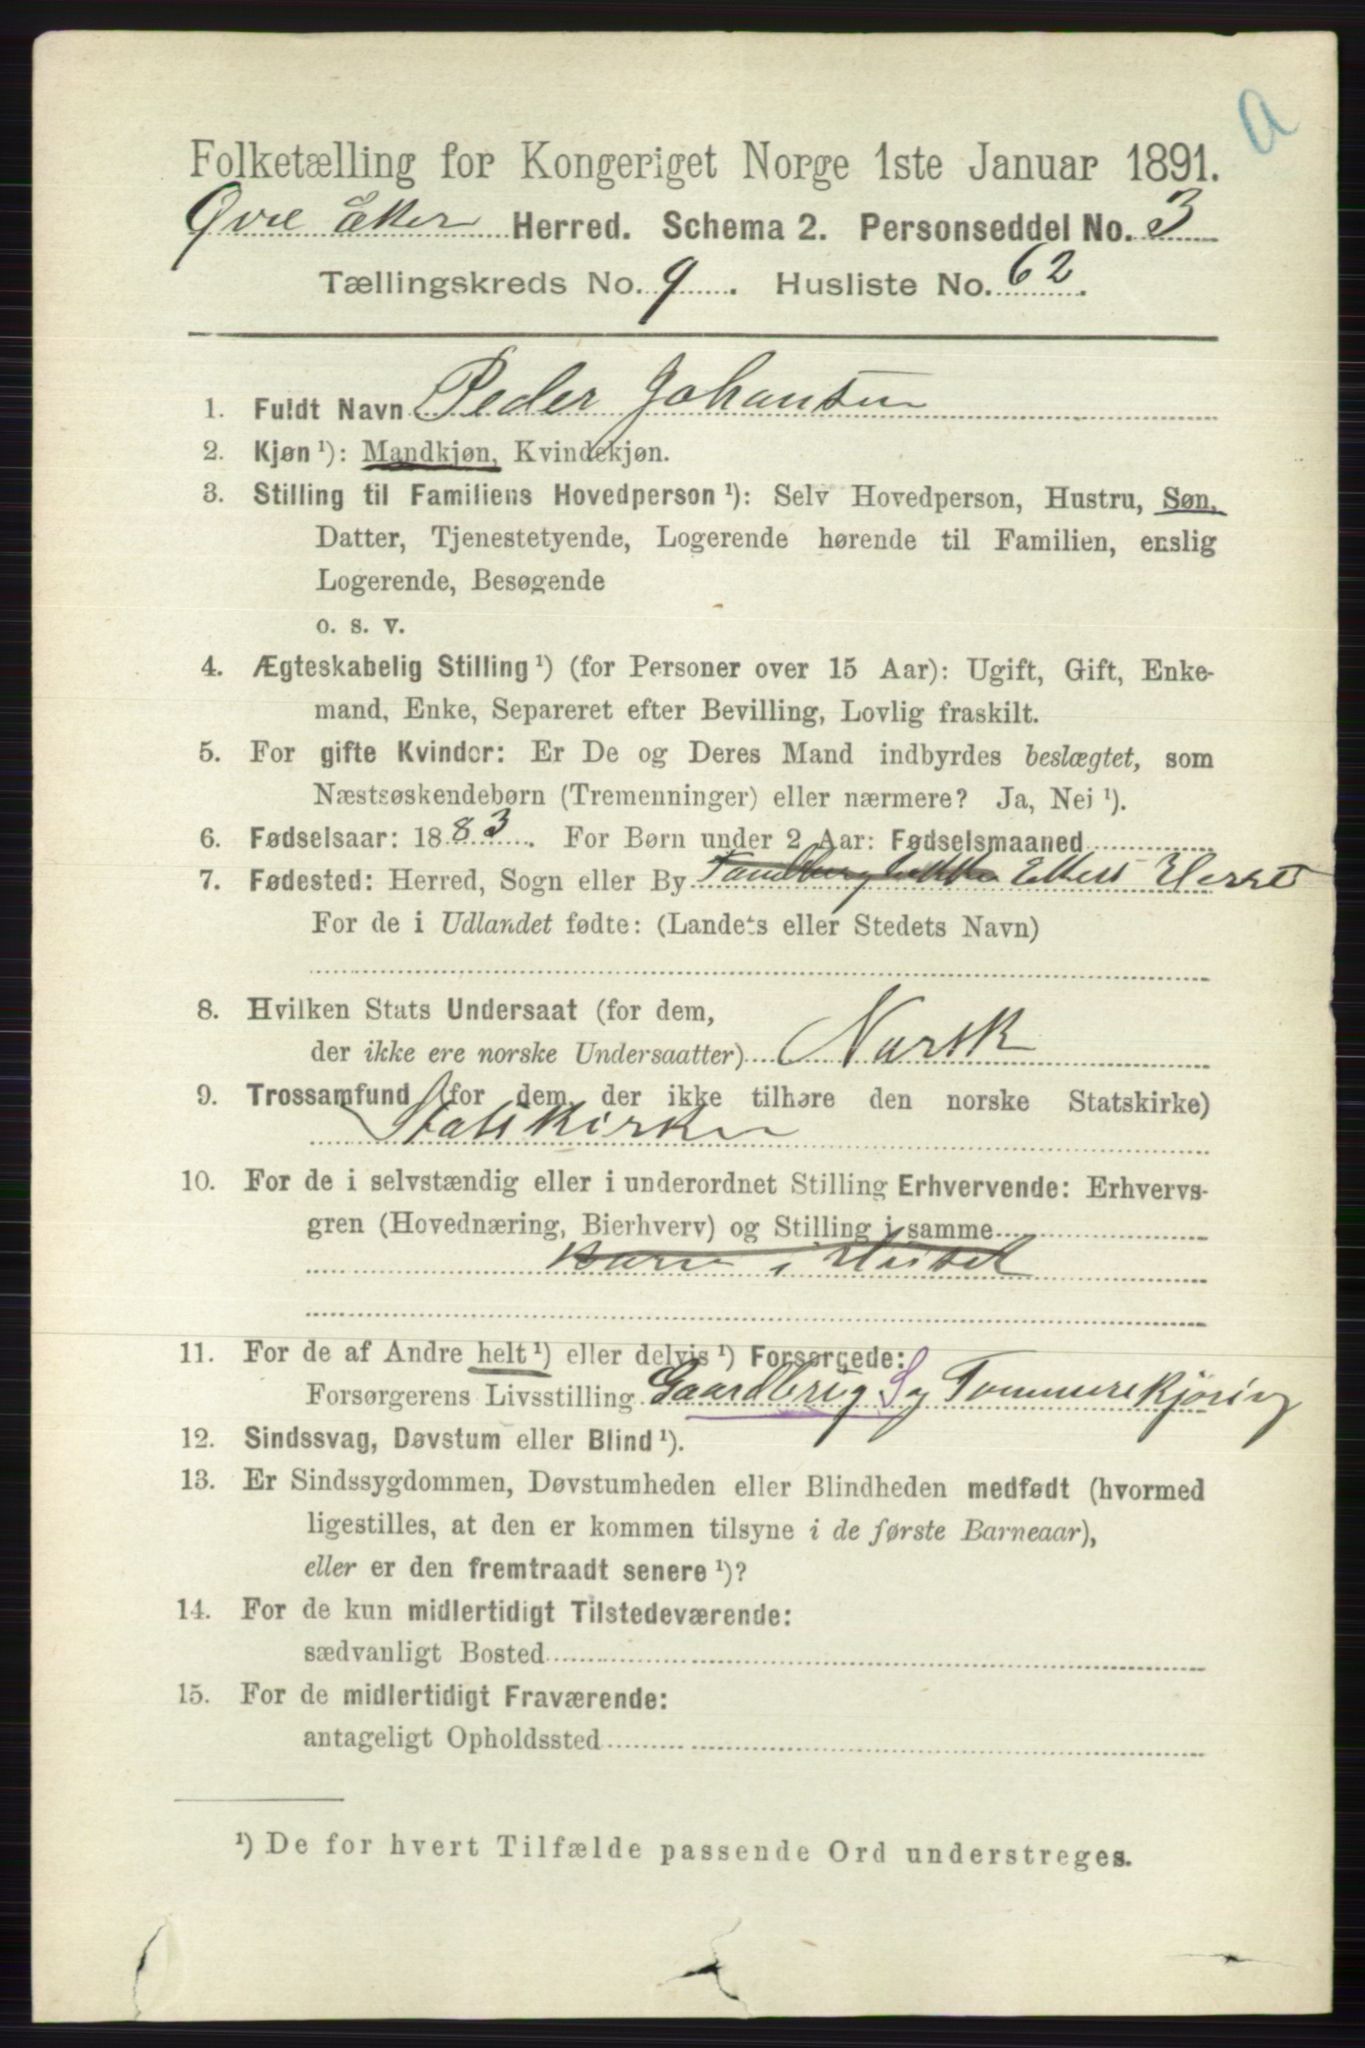 a
Folketælling for Kongeriget Norge 1ste Januar 1891.
Øvre Eker Herred. Schema 2. Personseddel No. 3
Tællingskreds No. 9. Husliste No. 62.
1. Fuldt Navn Peder Johansen
2. Kjøn ¹): Mandkjøn, Kvindekjøn.
3. Stilling til Familiens Hovedperson ¹): Selv Hovedperson, Hustru, Søn,
Datter, Tjenestetyende, Logerende hørende til Familien, enslig
Logerende, Besøgende
o. s. v.
4. Ægteskabelig Stilling ¹) (for Personer over 15 Aar): Ugift, Gift, Enke-
mand, Enke, Separeret efter Bevilling, Lovlig fraskilt.
5. For gifte Kvinder: Er De og Deres Mand indbyrdes beslægtet, som
Næstsøskendebørn (Tremenninger) eller nærmere? Ja, Nei ¹).
6. Fødselsaar: 1883. For Børn under 2 Aar: Fødselsmaaned
7. Fødested: Herred, Sogn eller By Ekers Herret
For de i Udlandet fødte: (Landets eller Stedets Navn)
8. Hvilken Stats Undersaat (for dem,
der ikke ere norske Undersaatter) Norsk
9. Trossamfund (for dem, der ikke tilhøre den norske Statskirke)
Statskirken
10. For de i selvstændig eller i underordnet Stilling Erhvervende: Erhvervs-
gren (Hovednæring, Bierhverv) og Stilling i samme
Barn i Huset
11. For de af Andre helt ¹) eller delvis ¹) Forsørgede:
Forsørgerens Livsstilling Gaardbrug S og Tømmerkjøring
12. Sindssvag, Døvstum eller Blind ¹).
13. Er Sindssygdommen, Døvstumheden eller Blindheden medfødt (hvormed
ligestilles, at den er kommen tilsyne i de første Barneaar),
eller er den fremtraadt senere ¹)?
14. For de kun midlertidigt Tilstedeværende:
sædvanligt Bosted
15. For de midlertidigt Fraværende:
antageligt Opholdssted
¹) De for hvert Tilfælde passende Ord understreges.